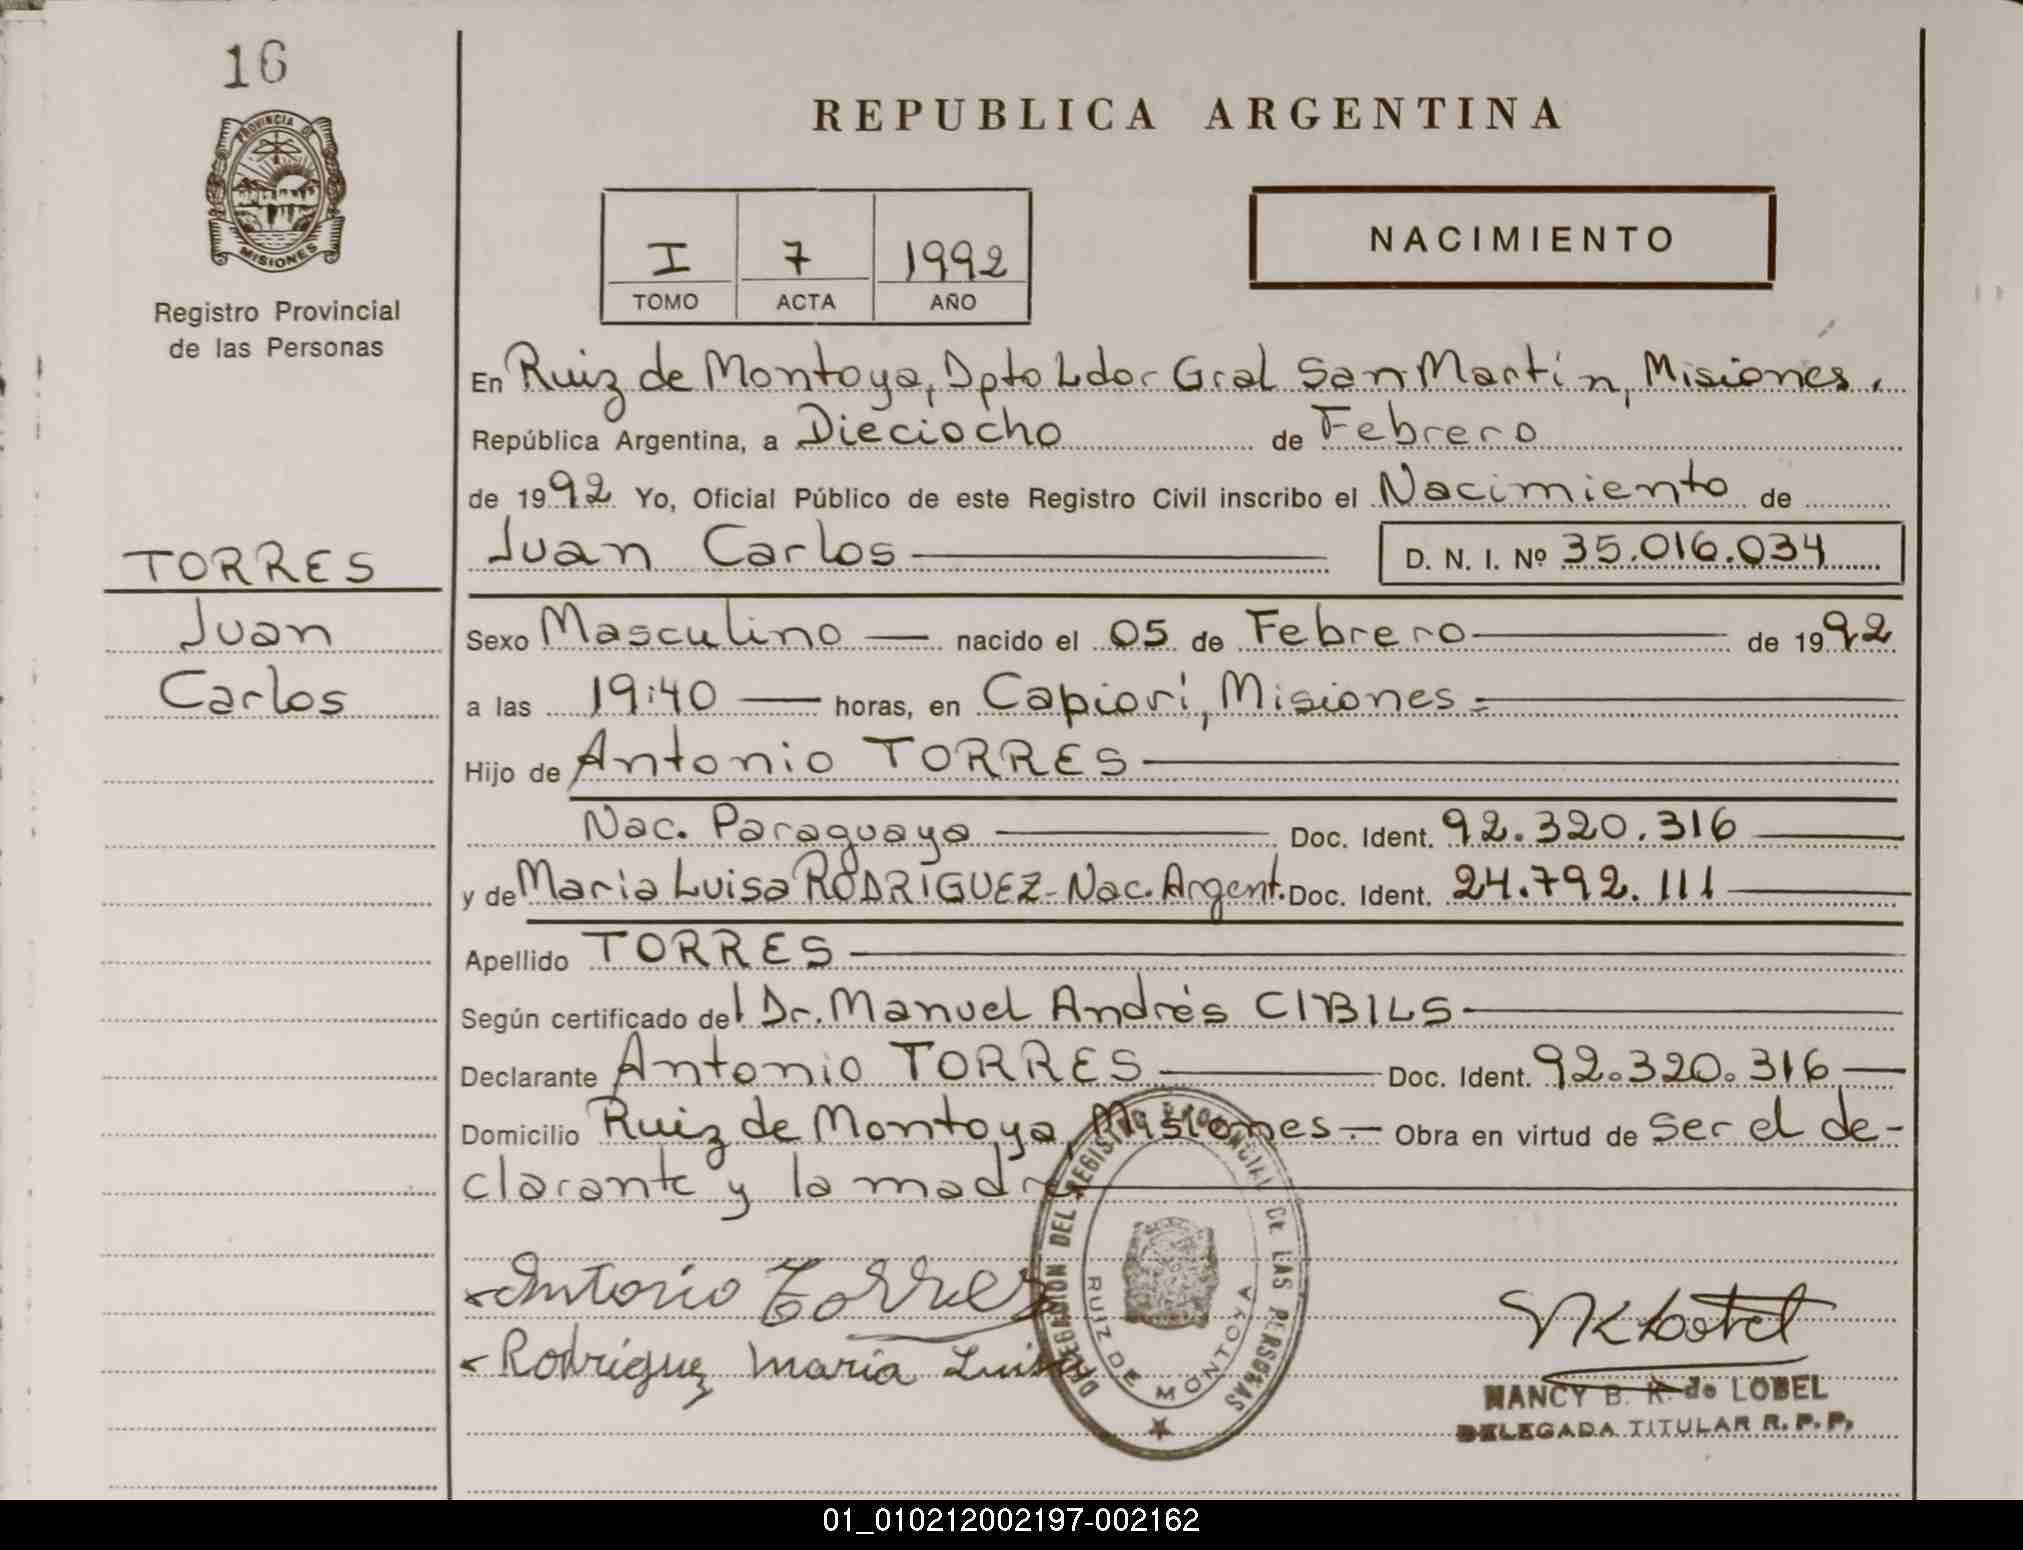 16
REPUBLICA ARGENTINA
PROVINCIA DE
MISIONES
NACIMIENTO
I 7 1992
TOMO ACTA AÑO
Registro Provincial
de las Personas
En Ruiz de Montoya, Dpto Ldor Gral San Martín, Misiones.
República Argentina, a Dieciocho de Febrero
de 1992 Yo, Oficial Público de este Registro Civil inscribo el Nacimiento de
Juan Carlos D. N. I. Nº 35.016.034
TORRES
Juan
Carlos
Sexo Masculino nacido el 05 de Febrero de 1992
a las 19:40 horas, en Capioví, Misiones.-
Hijo de Antonio TORRES
Nac. Paraguaya Doc. Ident. 92.320.316
y de Maria Luisa RODRIGUEZ- Nac. Argent. Doc. Ident. 24.792.111
Apellido TORRES
Según certificado del Dr. Manuel Andrés CIBILS
Declarante Antonio TORRES Doc. Ident. 92.320.316
Domicilio Ruiz de Montoya, Misiones.- Obra en virtud de ser el de-
clarante y la madre
Antonio Torres
Rodríguez María Luisa
DELEGACION DEL REGISTRO PROVINCIAL DE LAS PERSONAS
RUIZ DE MONTOYA
NANCY B. R. de LOBEL
DELEGADA TITULAR R. P. P.
01_010212002197-002162